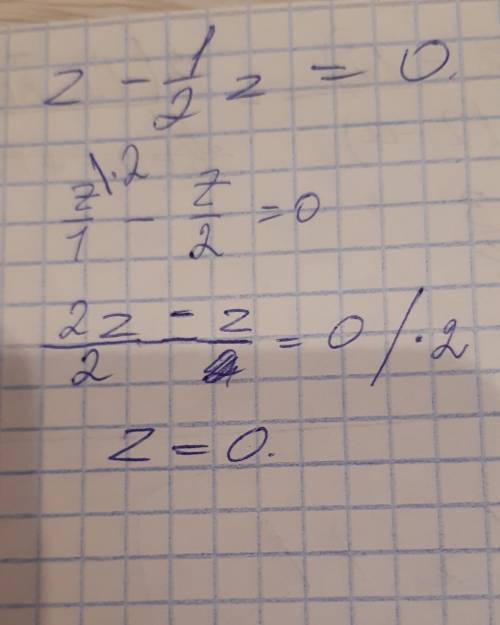 z - 1/2 z = 0.
z/1 \·2 - z/2 = 0
(2z - z)/2 = 0 /·2
z = 0.